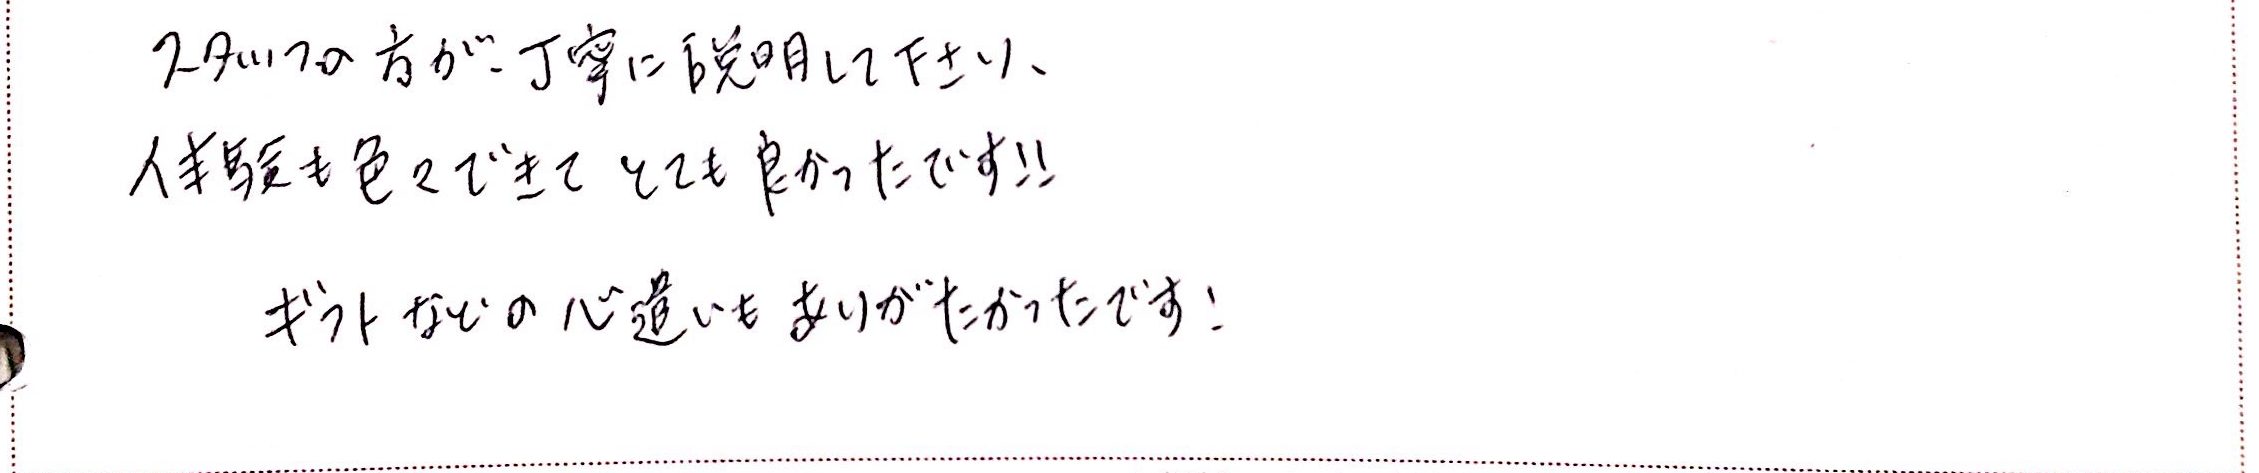 スタッフの方が、丁寧に説明して下さり、
体験も色々できて とても良かったです!!
ギフトなどの心遣いも ありがたかったです!